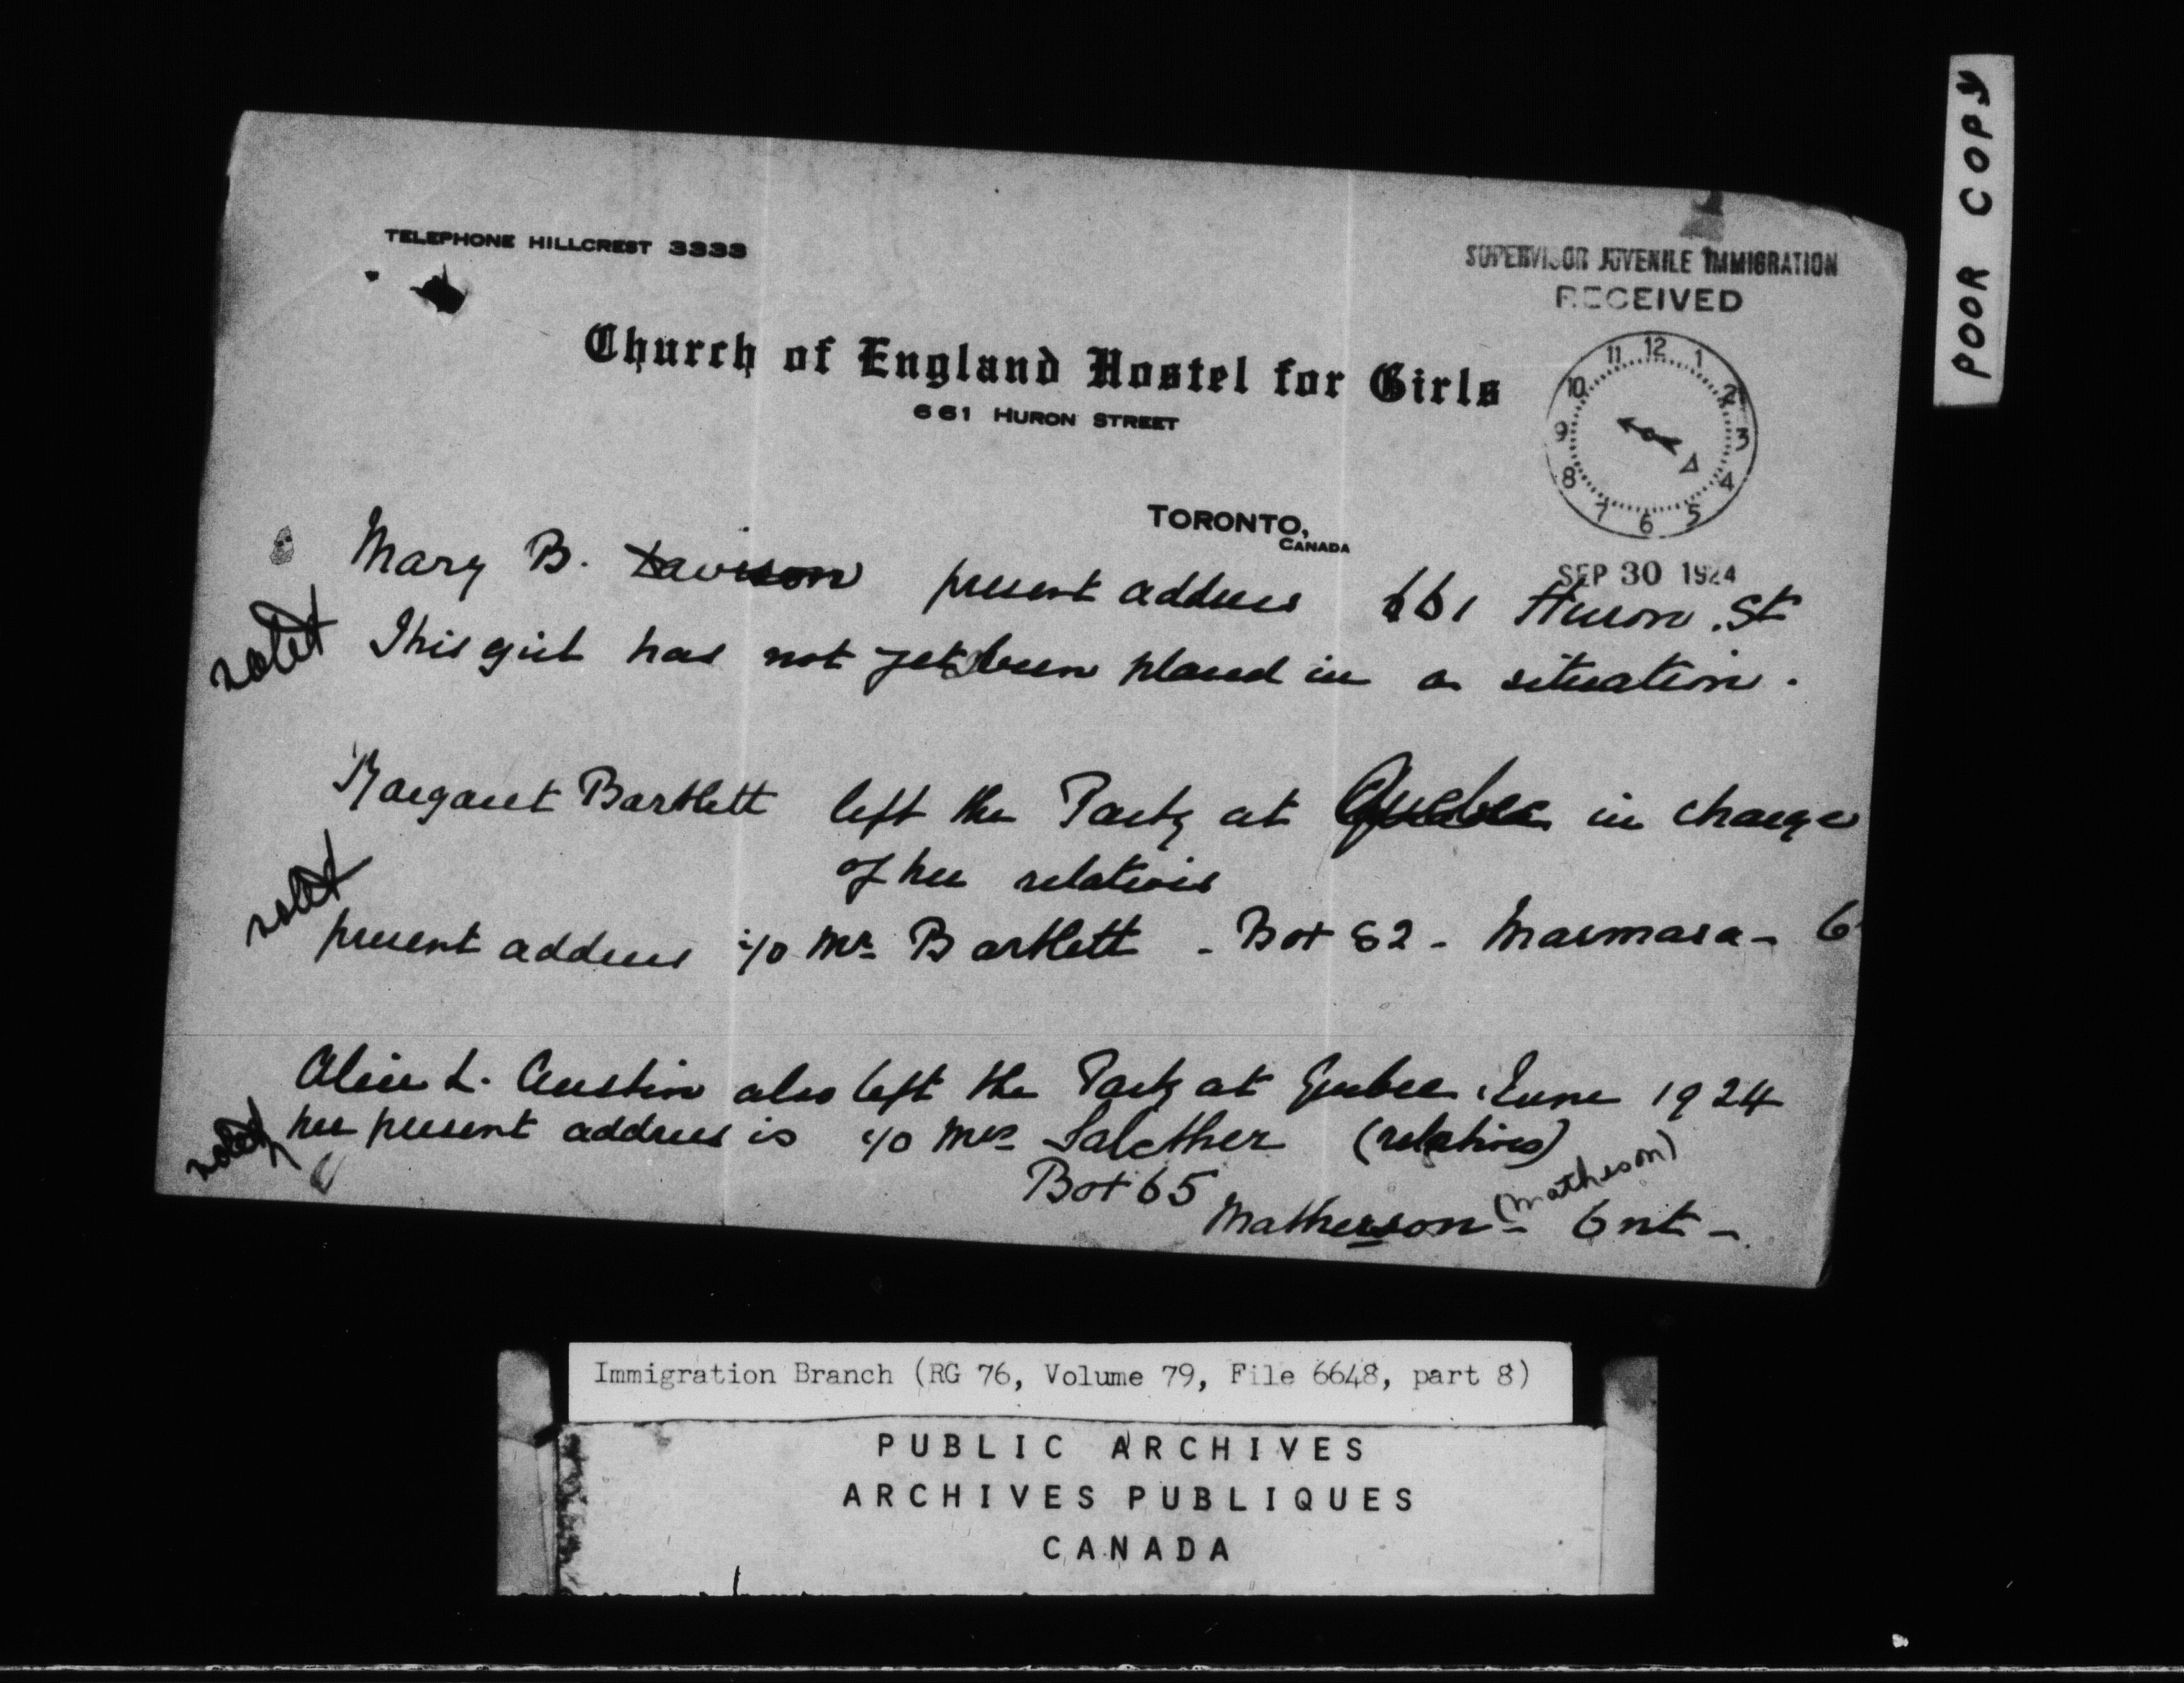 POOR COPY
TELEPHONE HILLCREST 3333
SUPERVISOR JUVENILE IMMIGRATION
RECEIVED
Church of England Hostel for Girls
661 HURON STREET
12 1 2 3 4 5 6 7 8 9 10 11
TORONTO,
CANADA
SEP 30 1924
Mary B. Davison present address 661 Huron St
noted This girl has not yet been placed in a situation.
Margaret Bartlett left the Party at Quebec in charge
of her relatives
noted
present address c/o Mr Bartlett - Box 82 - Marmara - O
Alice L. Austin also left the Party at Quebec June 1924
noted her present address is c/o Mrs (relatives)
Box 65
Matherson - (Matheson) Ont -
Immigration Branch (RG 76, Volume 79, File 6648, part 8)
PUBLIC ARCHIVES
ARCHIVES PUBLIQUES
CANADA